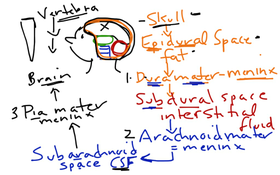 Vertebra
-Skull-
Epidural Space
fat
1. Dura mater-meninx
Subdural space
interstitial
fluid
2 Arachnoid mater
= meninx
Subarachnoid
space CSF
3 Pia mater
meninx
Brain